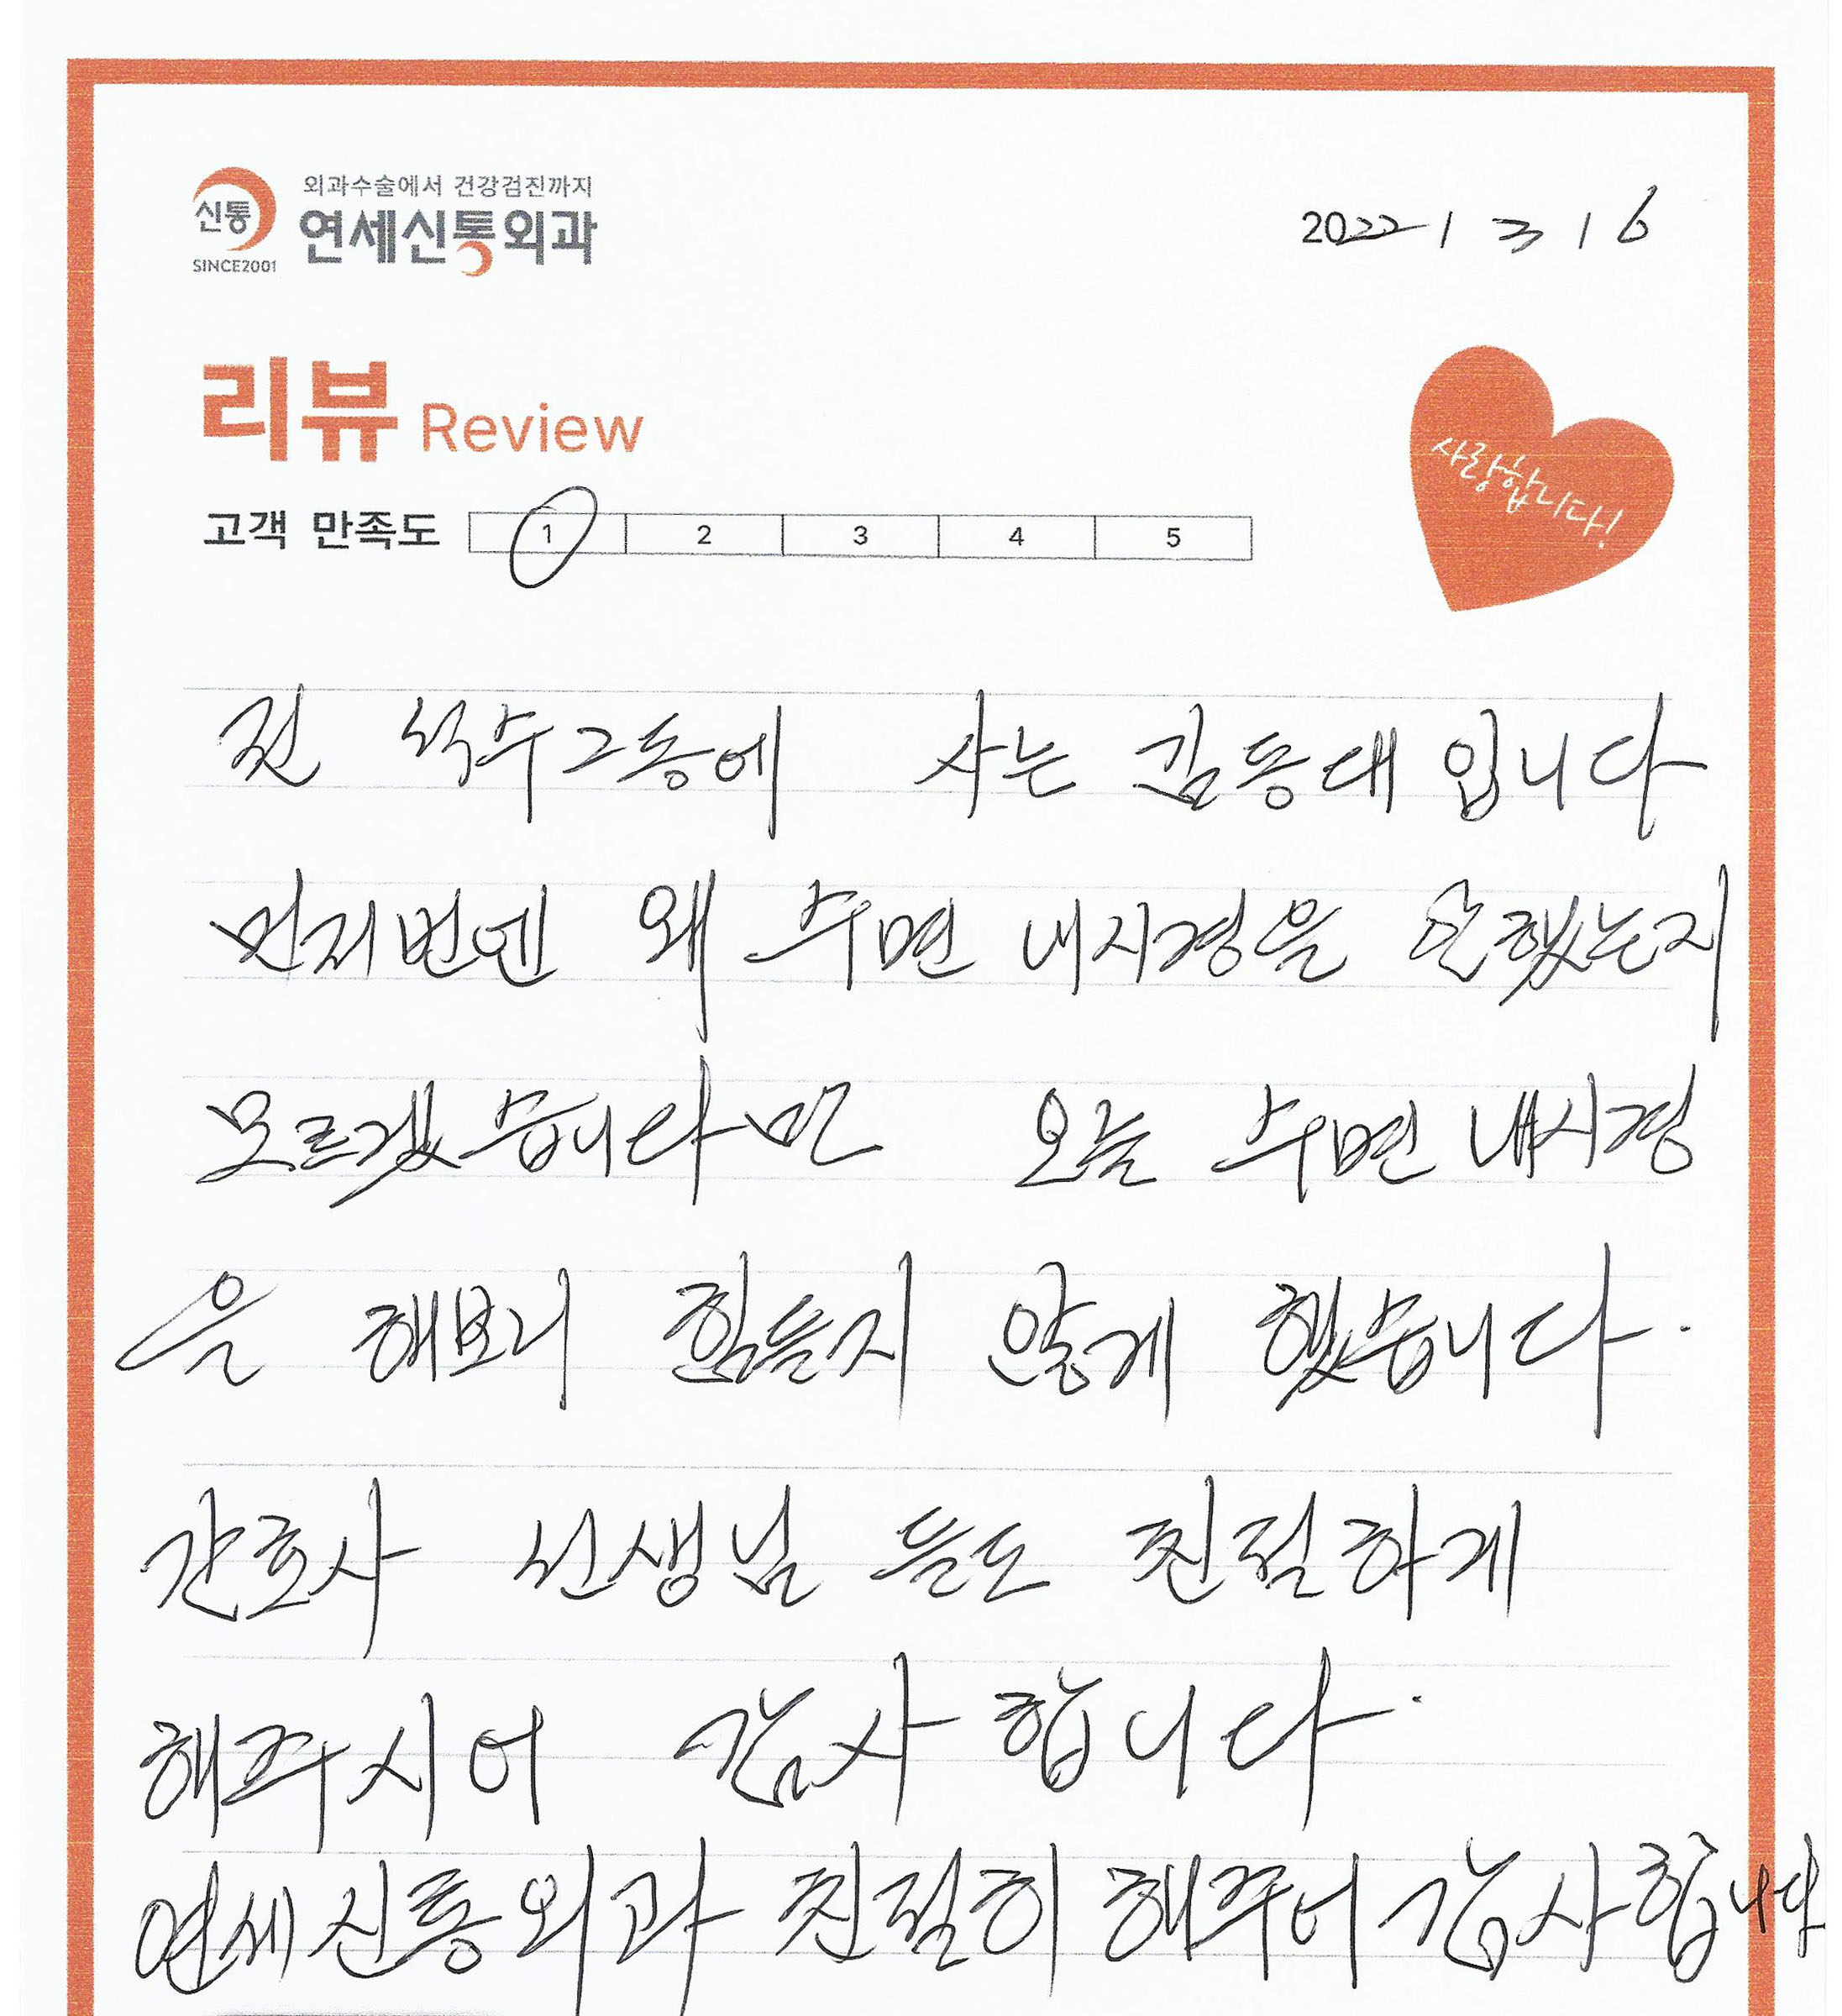 외과수술에서 건강검진까지
신통 연세신통외과
SINCE2001
2022 / 3 / 16
리뷰 Review
사랑합니다!
고객 만족도 1 2 3 4 5
전 석수2동에 사는 김동대 입니다
먼저번엔 왜 수면 내시경을 안했는지
모르겠습니다만 오늘 수면 내시경
을 해보니 힘들지 않게 했습니다.
간호사 선생님 들도 친절하게
해주시어 감사합니다.
연세신통외과 친절히 해주어 감사합니다